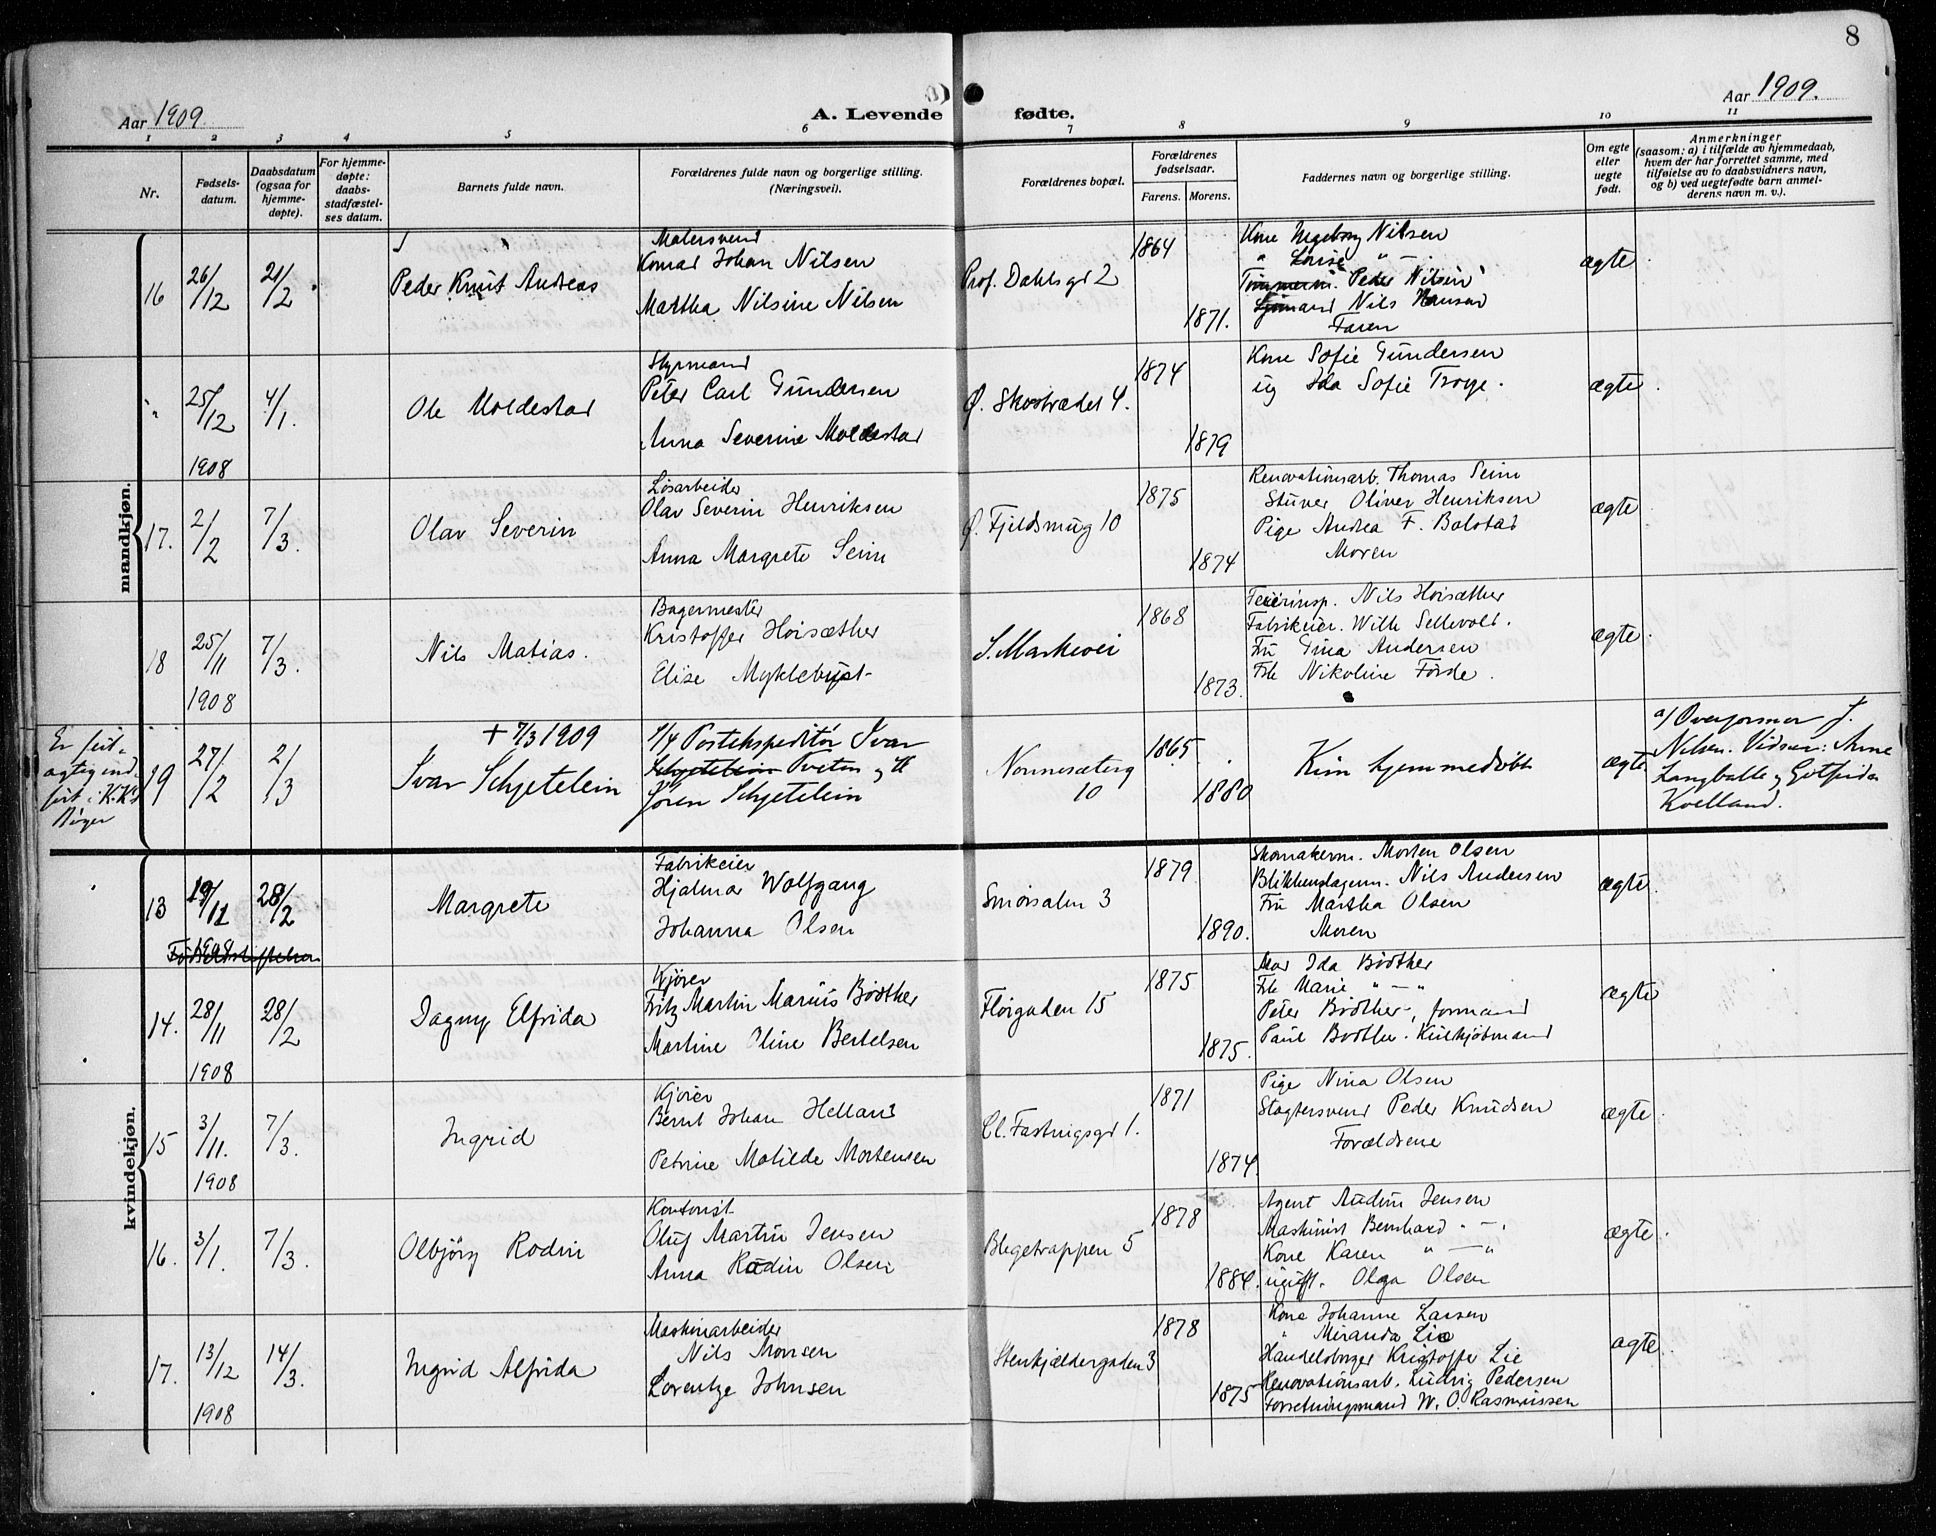 8
Aar 1909.
A. Levende
fødte.
Aar 1909.
1 2 3 4 5 6 7 8 9 10 11
Nr.
Fødsels-
datum.
Daabsdatum
(ogsaa for
hjemme-
døpte).
For hjemme-
døpte:
daabs-
stadfæstel-
ses datum.
Barnets fulde navn.
Forældrenes fulde navn og borgerlige stilling.
(Næringsvei).
Forældrenes bopæl.
Forældrenes
fødselsaar.
Farens. Morens.
Faddernes navn og borgerlige stilling.
Om egte
eller
uegte
født.
Anmerkninger
(saasom: a) i tilfælde av hjemmedaab,
hvem der har forrettet samme, med
tilføielse av to daabsvidners navn,
og b) ved uegtefødte barn anmel-
derens navn m. v.).
mandkjøn.
16 26/12 21/2
Peder Knut Andreas
Malersvend
Konrad Johan Nilsen
Martha Nilsine Nilsen
Prof. Dahlsgt 2
1864
1871.
Kone Ingeborg Nilsen
" Louise " -
Tømmerm. Peder Nilsen
Sjømand Nils Hansen
Faren
ægte
" 25/12 4/1.
1908
Ole Moldestad
Styrmand
Peter Carl Gundersen
Anna Severine Moldestad
Ø. Skostrædet 4.
1874
1879
Kone Sofie Gundersen
ug Ida Sofie Troye.
ægte
17. 2/2 7/3.
Olav Severin
Løsarbeider
Olav Severin Henriksen
Anna Margrete Seim
Ø. Fjeldsmug 10
1875
1874
Renovationsarb. Thomas Seim
Stuver Oliver Henriksen
Pige Andrea F. Bolstad
Moren
ægte
18 25/11 7/3.
1908
Nils Matias.
Bagermester
Kristoffer Hoisæther
Elise Myklebust
S. Markevei
1868
1873.
Feierinsp. Nils Hoisæther
Fabrikeier. Wilh Sellevold.
Fru Gina Andersen
Frk Nikoline Förde.
ægte
Er
Bøger
19 27/2 2/3
+ 7/3 1909
Ivar Schjetelein
Postekspeditør Ivar
Schjetelein
Schjetelein
Nonnesæterg
10
1865
1880
Kun hjemmedøbt
ægte
a/ J.
Nilsen. Vidner: Arne
Langballe og Gotfrida
Kvelland.
kvindekjøn.
13 19/12 28/2
1908
Fødselsstiftelsen
Margrete
Fabrikeier
Hjalmar Wolfgang
Johanna Olsen
Smörsalm 3
1879
1890.
Skomakerm. Morten Olsen
Blikkenslagerm. Nils Andersen
Fru Martha Olsen
Moren
ægte
14. 28/11 28/2
1908
Dagny Elfrida
Kjører
Fritz Martin Marius Bödtker
Martine Oline Bertelsen
Fløigaden 15
1875
1875.
Mor Ida Bödtker
Frk Marie " - "
Peter Bödtker, formand
Paul Bödtker. Kulkjöbmand
ægte
15 3/11. 7/3.
1908
Ingrid
Kjører
Bernt Johan Helland
Petrine Matilde Mortensen
Cl. Fastingsgt 1.
1871
1874.
Pige Nina Olsen
Slagtersvend Peder Knudsen
Forældrene
ægte
16. 3/1. 7/3.
Olbjörg Rodin
Kontorist
Oluf Martin Jensen
Anna Rodin Olsen
Blegetrappen 5
1878
1884.
Agent Audun Jensen
Maskinist Bernhard " - "
Kone Karen " - "
ugift. Olga Olsen
ægte
17. 13/12 14/3.
1908
Ingrid Alfrida
Maskinarbeider
Nils Monsen
Lorentze Johnsen
Stenkjældergaden 3
1878
1875
Kone Johanne Larsen
" Miranda Lie
Handelsborger Kristoffer Lie
Renovationsarb. Ludvig Pedersen
Forretningsmand W. O. Rasmussen
ægte